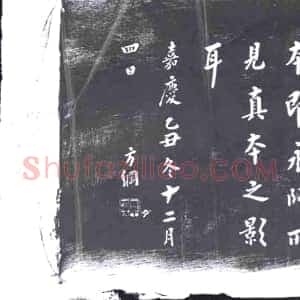 本即承師所
見真本之影
耳
嘉慶乙丑冬十二月
四日
方綱
Shufaziliao.com